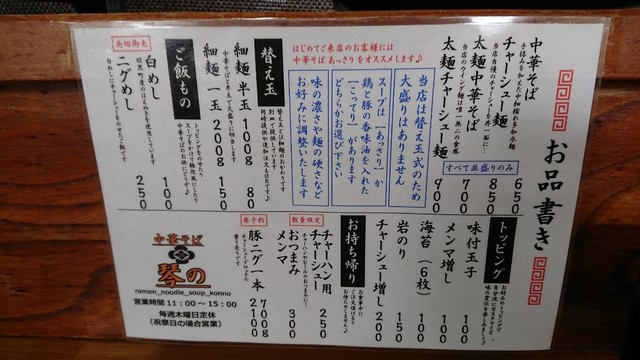 お品書き
中華そば 650
手揉みを加えた中細縮れ多加水麺
チャーシュー麺 850
当店自慢のチャーシューを丼一面に!
太麺中華そば 700
太麺チャーシュー麺 900
すべて並盛りのみ
当店は替え玉式のため
大盛りはありません
スープは「あっさり」か
鶏と豚の香味油を入れた
「こってり」があります
どちらかお選び下さい
味の濃さや麺の硬さなど
お好みに調整いたします
はじめてご来店のお客様には
中華そば あっさり をオススメします♪
替え玉
替え玉とは細麺のおかわりです
別皿で提供しています
同時提供や追加注文もOKです♪
細麺 半玉 100g 80
細麺 一玉 200g 150
ご飯もの
売切御免
白めし 100
ニグめし 250
トッピング
味付玉子 100
メンマ増し 100
海苔(6枚) 100
岩のり 150
チャーシュー増し 200
お持ち帰り
お食事中に
ご注文頂けると
お待たせしません♪
数量限定
チャーハン用
チャーシュー 250
おつまみ
メンマ 300
要予約
豚ニグ一本 700g 2100
中華そば
琴の
ramen_noodle_soup_konno
営業時間 11:00～15:00
毎週木曜日定休
(祝祭日の場合営業)